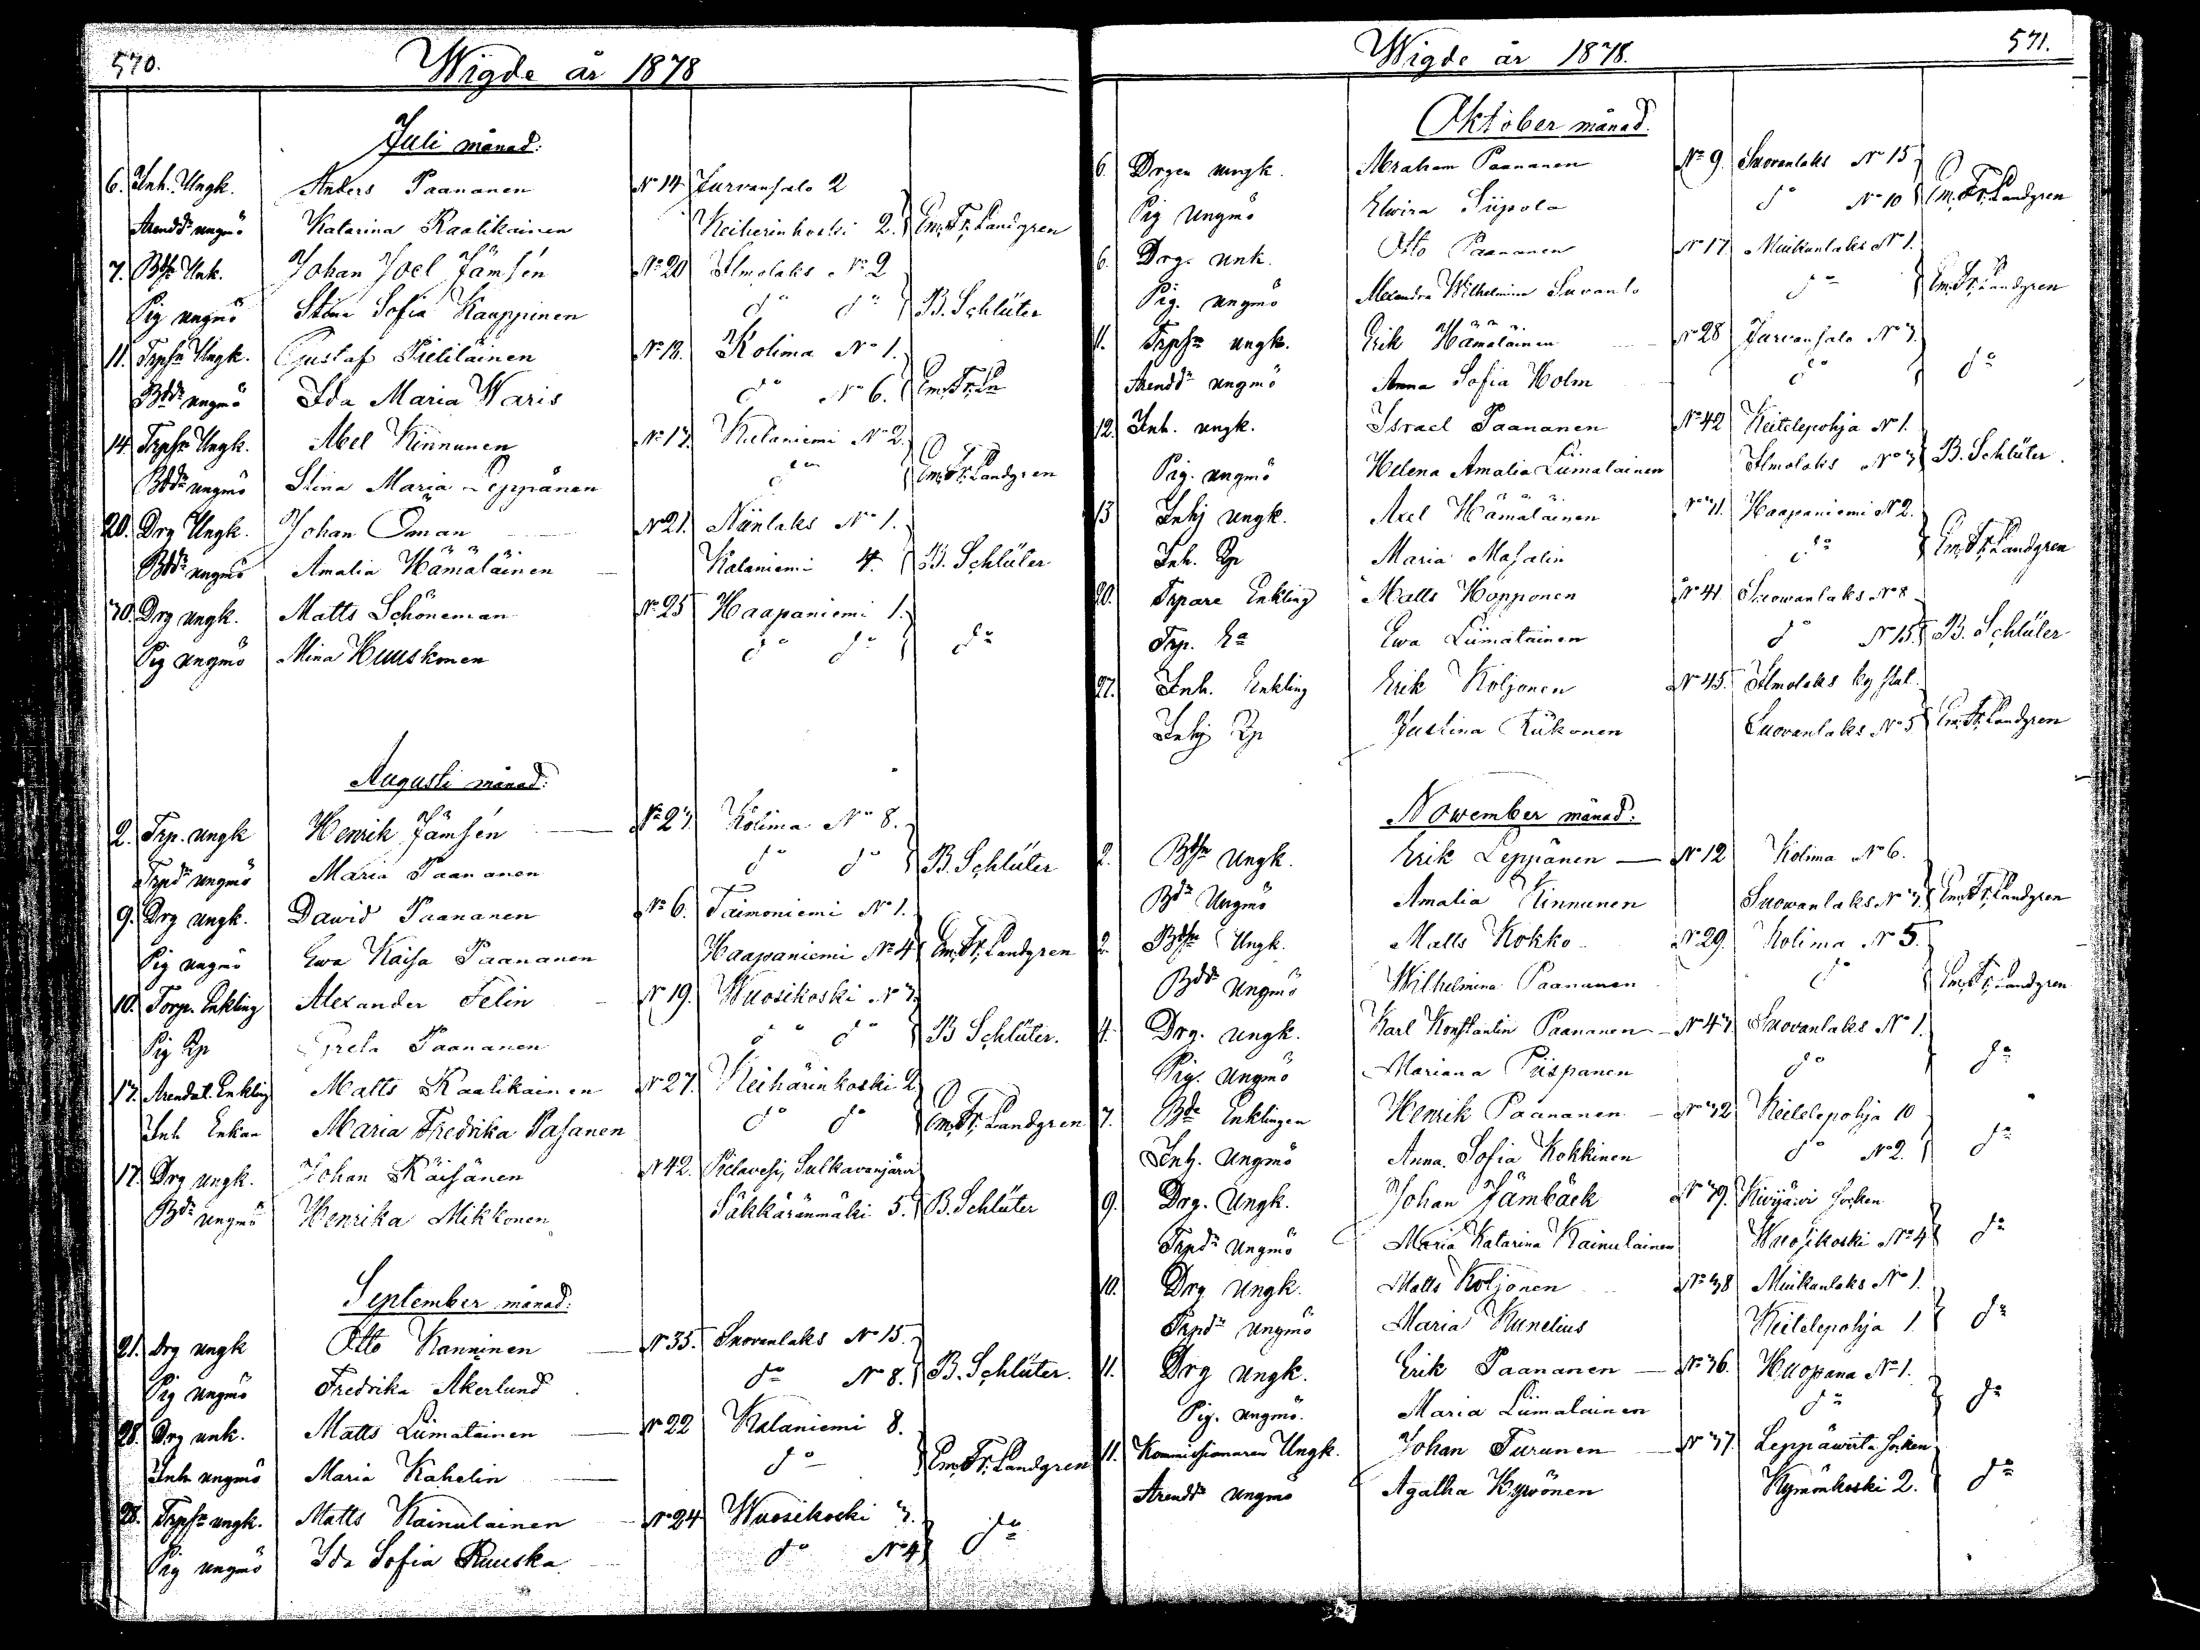 570.
Wigde år 1878
Juli månad:
6. Inh. Ungk. Anders Paananen No 14 Jurvansalo 2
Arendd:r ungmö Katarina Raatikainen Keiherinkoski 2. Em. Fr. Landgren
7. Bds: Unk. Johan Joel Jämsén No 20 Ilmolaks No 2
Pig ungmö Stina Sofia Kauppinen do do B. Schlüter
11. Trpsn Ungk. Gustaf Pielitäinen No 18. Kolima No 1.
Bdd:r ungmö Ida Maria Waris do No 6. Em. Fr. Ln
14. Trpsn Ungk. Abel Kinnunen No 13. Kulaniemi No 2.
Bdd:r ungmö Stina Maria Leppänen do Em. Fr. Landgren
20. Drg Ungk. Johan Öman No 21. Niinlaks No 1.
Bdd:r ungmö Amalia Hämäläinen Kalaniemi 4. B. Schlüter
30. Drg ungk. Matts Schöneman No 25 Haapaniemi 1.
Pig ungmö Mina Huuskonen do do do
Augusti månad:
2. Trp. ungk Henrik Jämsén No 23. Kolima No 8.
Trpd:r ungmö Maria Paananen do do B. Schlüter
9. Drg ungk. Dawid Paananen No 6. Taimoniemi No 1.
Pig ungmö Ewa Kaisa Paananen Haapaniemi No 4 Em. Fr. Landgren
10. Torp. Enkling Alexander Felin No 19. Wuosikoski No 3.
Pig Qp Greta Paananen do do B Schlüter.
17. Arendat. Enkling Matts Raatikainen No 27. Keihärinkoski 2
Inh Enkan Maria Fredrika Pasanen do do Em. Fr. Landgren
17. Drg ungk. Johan Räisänen No 42. Pielavesi, Sulkavanjärvi
Bd:r ungmö Henrika Mikkonen Säkkäränmäki 5. B. Schlüter
September månad:
21. Drg ungk Otto Kanninen No 35. Suovanlaks No 15.
Pig ungmö Fredrika Åkerlund do No 8. B. Schlüter.
28. Drg unk. Matts Liimatainen No 22 Kalaniemi 8.
Inh ungmö Maria Kahelin do Em. Fr. Landgren
28. Trpsn ungk. Matts Kainulainen No 24 Wuosikoski 3.
Pig ungmö Ida Sofia Ruuska do No 4 do
571.
Wigde år 1878.
Oktober månad.
6. Drgen ungk. Abraham Paananen No 9. Suovanlaks No 15
Pig Ungmö Elwira Siipola do No 10 Em. Fr. Landgren
6. Drg. unk. Otto Paananen No 17. Muikunlaks No 1.
Pig. ungmö Alexandra Wilhelmina Suvanto do Em. Fr. Landgren
11. Trpsn ungk. Erik Hämäläinen No 28 Jurvansalo No 3.
Arendd:r ungmö Anna Sofia Holm do do
12. Inh. ungk. Israel Paananen No 42 Keitelepohja No 1.
Pig. ungmö Helena Amalia Liimatainen Ilmolaks No 3 B. Schlüter.
13 Inhj ungk. Axel Hämäläinen No 31. Haapaniemi No 2.
Inh. Qp Maria Masalin do Em. Fr. Landgren
20. Trpare Enkling Matts Hopponen No 41 Suowanlaks No 8
Trp. Ea Ewa Liimatainen do No 15. B. Schlüter
27. Inh. Enkling Erik Koljonen No 45. Ilmolaks by
Inhj Qp Justina Rukonen Suovanlaks No 5 Em. Fr. Landgren
Nowember månad:
2. Bdsn Ungk. Erik Leppänen No 12 Kolima No 6.
Bd:r Ungmö Amalia Kinnunen Suowanlaks No 3. Em. Fr. Landgren
2. Bdsn Ungk. Matts Kokko No 29. Kolima No 5.
Bdd:r Ungmö Wilhelmina Paananen do Em. Fr. Landgren
4. Drg. ungk. Karl Konstantin Paananen No 43 Suovanlaks No 1.
Pig. ungmö Mariana Piispanen do do
7. Bd:r Enklingen Henrik Paananen No 32 Keitelepohja 10
Inh. Ungmö Anna Sofia Kokkinen do No 2. do
9. Drg. Ungk. Johan Jämbäck No 39. Kivijärvi socken
Trpd:r Ungmö Maria Katarina Kainulainen Wuosikoski No 4 do
10. Drg Ungk. Matts Koljonen No 38 Muikunlaks No 1.
Trpd:r ungmö Maria Kunelius Keitelepohja 1. do
11. Drg ungk. Erik Paananen No 36. Huopana No 1.
Pig. ungmö. Maria Liimatainen do do
11. Kommissionaren Ungk. Johan Turunen No 37. Leppäwirta socken
Arendd:r ungmö Agatha Hyvönen Kymönkoski 2. do